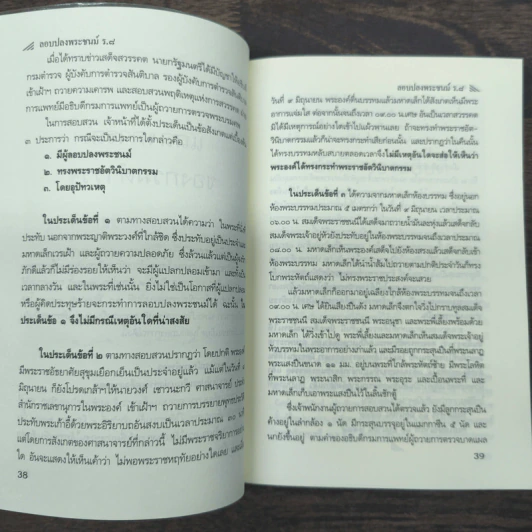 ลอบปลงพระชนม์ ร.๘
เมื่อได้ทราบข่าวเสด็จสวรรคต นายกรัฐมนตรีได้มีบัญชาให้อธิบดี
กรมตำรวจ ผู้บังคับการตำรวจสันติบาล รองผู้บังคับการตำรวจ
เข้าเฝ้าฯ ถวายความเคารพ และสอบสวนพฤติเหตุแห่งการสวรรคต
การแพทย์มีอธิบดีกรมการแพทย์เป็นผู้ถวายการตรวจพระบรมศพ
ในการสอบสวน เจ้าหน้าที่ได้ตั้งประเด็นเป็นข้อสังเกต
๓ ประการว่า กรณีจะเป็นประการใดกล่าวคือ
๑. มีผู้ลอบปลงพระชนม์
๒. ทรงพระราชอัตวินิบาตกรรม
๓. โดยอุปัทวเหตุ
ในประเด็นข้อที่ ๑ ตามทางสอบสวนได้ความว่า ในพระที่นั่ง
ประทับ นอกจากพระญาติพระวงศ์ที่ใกล้ชิด ซึ่งประทับอยู่เป็นประจำ
มหาดเล็กเวรเฝ้า และผู้ถวายความปลอดภัย ซึ่งล้วนแล้วแต่
ภักดีแล้วก็ไม่มีร่องรอยให้เห็นว่า จะมีผู้แปลกปลอมเข้ามา และทั้ง
เวลากลางวัน และในที่ชั้นนั้น ยิ่งไม่ใช่เป็นโอกาสที่ผู้แปลกปลอม
หรือผู้คิดประทุษร้ายจะกระทำการลอบปลงพระชนม์ได้ ฉะนั้น ใน
ประเด็นข้อ ๑ จึงไม่มีกรณีเหตุอันใดที่น่าสงสัย
ในประเด็นข้อที่ ๒ ตามทางสอบสวนปรากฏว่า โดยปกติ
มีพระราชอัธยาศัยสุขุมเยือกเย็นเป็นประจำอยู่แล้ว แม้แต่ในวันที่
มิถุนายน ก็ยังโปรดเกล้าฯ ให้นายวงศ์ เชาวนะกวี ศาสนาจารย์
สำนักราชเลขานุการในพระองค์ เข้าเฝ้าฯ ถวายการบรรยายพุทธประวัติ
ประทับพระเก้าอี้ด้วยพระอิริยาบถอันสงบเป็นเวลาประมาณ ๓๐ นาที
แต่โดยการสังเกตของศาสนาจารย์ที่กล่าวนี้ ไม่มีพระราชจริยาการ
ใด อันจะแสดงให้เห็นเค้าว่า ไม่พอพระราชหฤทัยอย่างใดเลย
38
ลอบปลงพระชนม์ ร.๘
วันที่ ๙ มิถุนายน พระองค์ตื่นบรรทมแล้วมหาดเล็กได้สังเกตเห็นมีพระ
อาการแจ่มใส ต่อจากนั้นจนถึงเวลา ๐๙.๐๐ น.เศษ อันเป็นเวลาสวรรคต
มิได้มีเหตุการณ์อย่างใดเข้าไปแผ้วพานเลย ถ้าจะทรงทำพระราชอัต-
วินิบาตกรรมแล้ว น่าจะทรงกระทำเสียก่อนนั้น แต่ตามความเป็นจริงในคืนนั้น
ได้ทรงบรรทมหลับสบายตลอดเวลาจึงไม่มีเหตุอันใดจะส่อให้เห็นว่า
พระองค์ได้ทรงกระทำพระราชอัตวินิบาตกรรม
ในประเด็นข้อที่ ๓ ได้ความจากมหาดเล็กห้องบรรทม ซึ่งอยู่นอก
ห้องพระบรรทมประมาณ ๕ เมตรว่า ในวันที่ ๙ มิถุนายน เวลาประมาณ
๐๖.๐๐ น. สมเด็จพระราชชนนีได้เสด็จมาถวายน้ำมันละหุ่งแล้วเสด็จกลับ
สมเด็จพระเจ้าอยู่หัวยังประทับอยู่ในห้องพระบรรทมจนถึงเวลาประมาณ
๐๘.๐๐ น. มหาดเล็กเห็นพระองค์เสด็จไปยังห้องสรง แล้วเสด็จกลับเข้าห้อง
พระบรรทม มหาดเล็กได้นำน้ำส้มไปถวายตามปกติประจำวันก็ทรง
โบกพระหัตถ์แสดงว่า ไม่ทรงพระราชประสงค์จะเสวย
แล้วมหาดเล็กก็ออกมาอยู่เพียงใกล้ห้องพระบรรทมจนถึงเวลา
๐๙.๐๐ น.เศษ ได้ยินเสียงปืนดัง มหาดเล็กจึงตกใจวิ่งไปกราบทูลสมเด็จ
พระราชชนนี สมเด็จพระราชชนนี พระอนุชา และพระพี่เลี้ยงพร้อมด้วย
มหาดเล็ก ได้วิ่งเข้าไปดู พระพี่เลี้ยงและมหาดเล็กเห็นสมเด็จพระเจ้าอยู่
หัวบรรทมในพระอาการอย่างเก่าแล้ว และมีรอยถูกกระสุนปืนที่พระนลาฏ
พระแสงปืนขนาด ๑๑ มม. อยู่บนพระที่ใกล้ชิดพระหัตถ์ซ้าย มีพระโลหิต
ที่พระนลาฏ พระนาสิก พระกรรณ พระอุระ และเปื้อนพระที่ และ
มหาดเล็กเก็บเอาพระแสงไปไว้ในลิ้นชักตู้
ซึ่งเจ้าพนักงานผู้ถวายการสอบสวนได้ตรวจแล้ว ยังมีลูกกระสุนปืน
ค้างอยู่ในลำกล้อง ๑ นัด มีกระสุนบรรจุอยู่ในแมกกาซีน ๕ นัด และ
นกยังขึ้นอยู่ ตามคำของอธิบดีกรมการแพทย์ผู้ถวายการตรวจบาดแผล
39